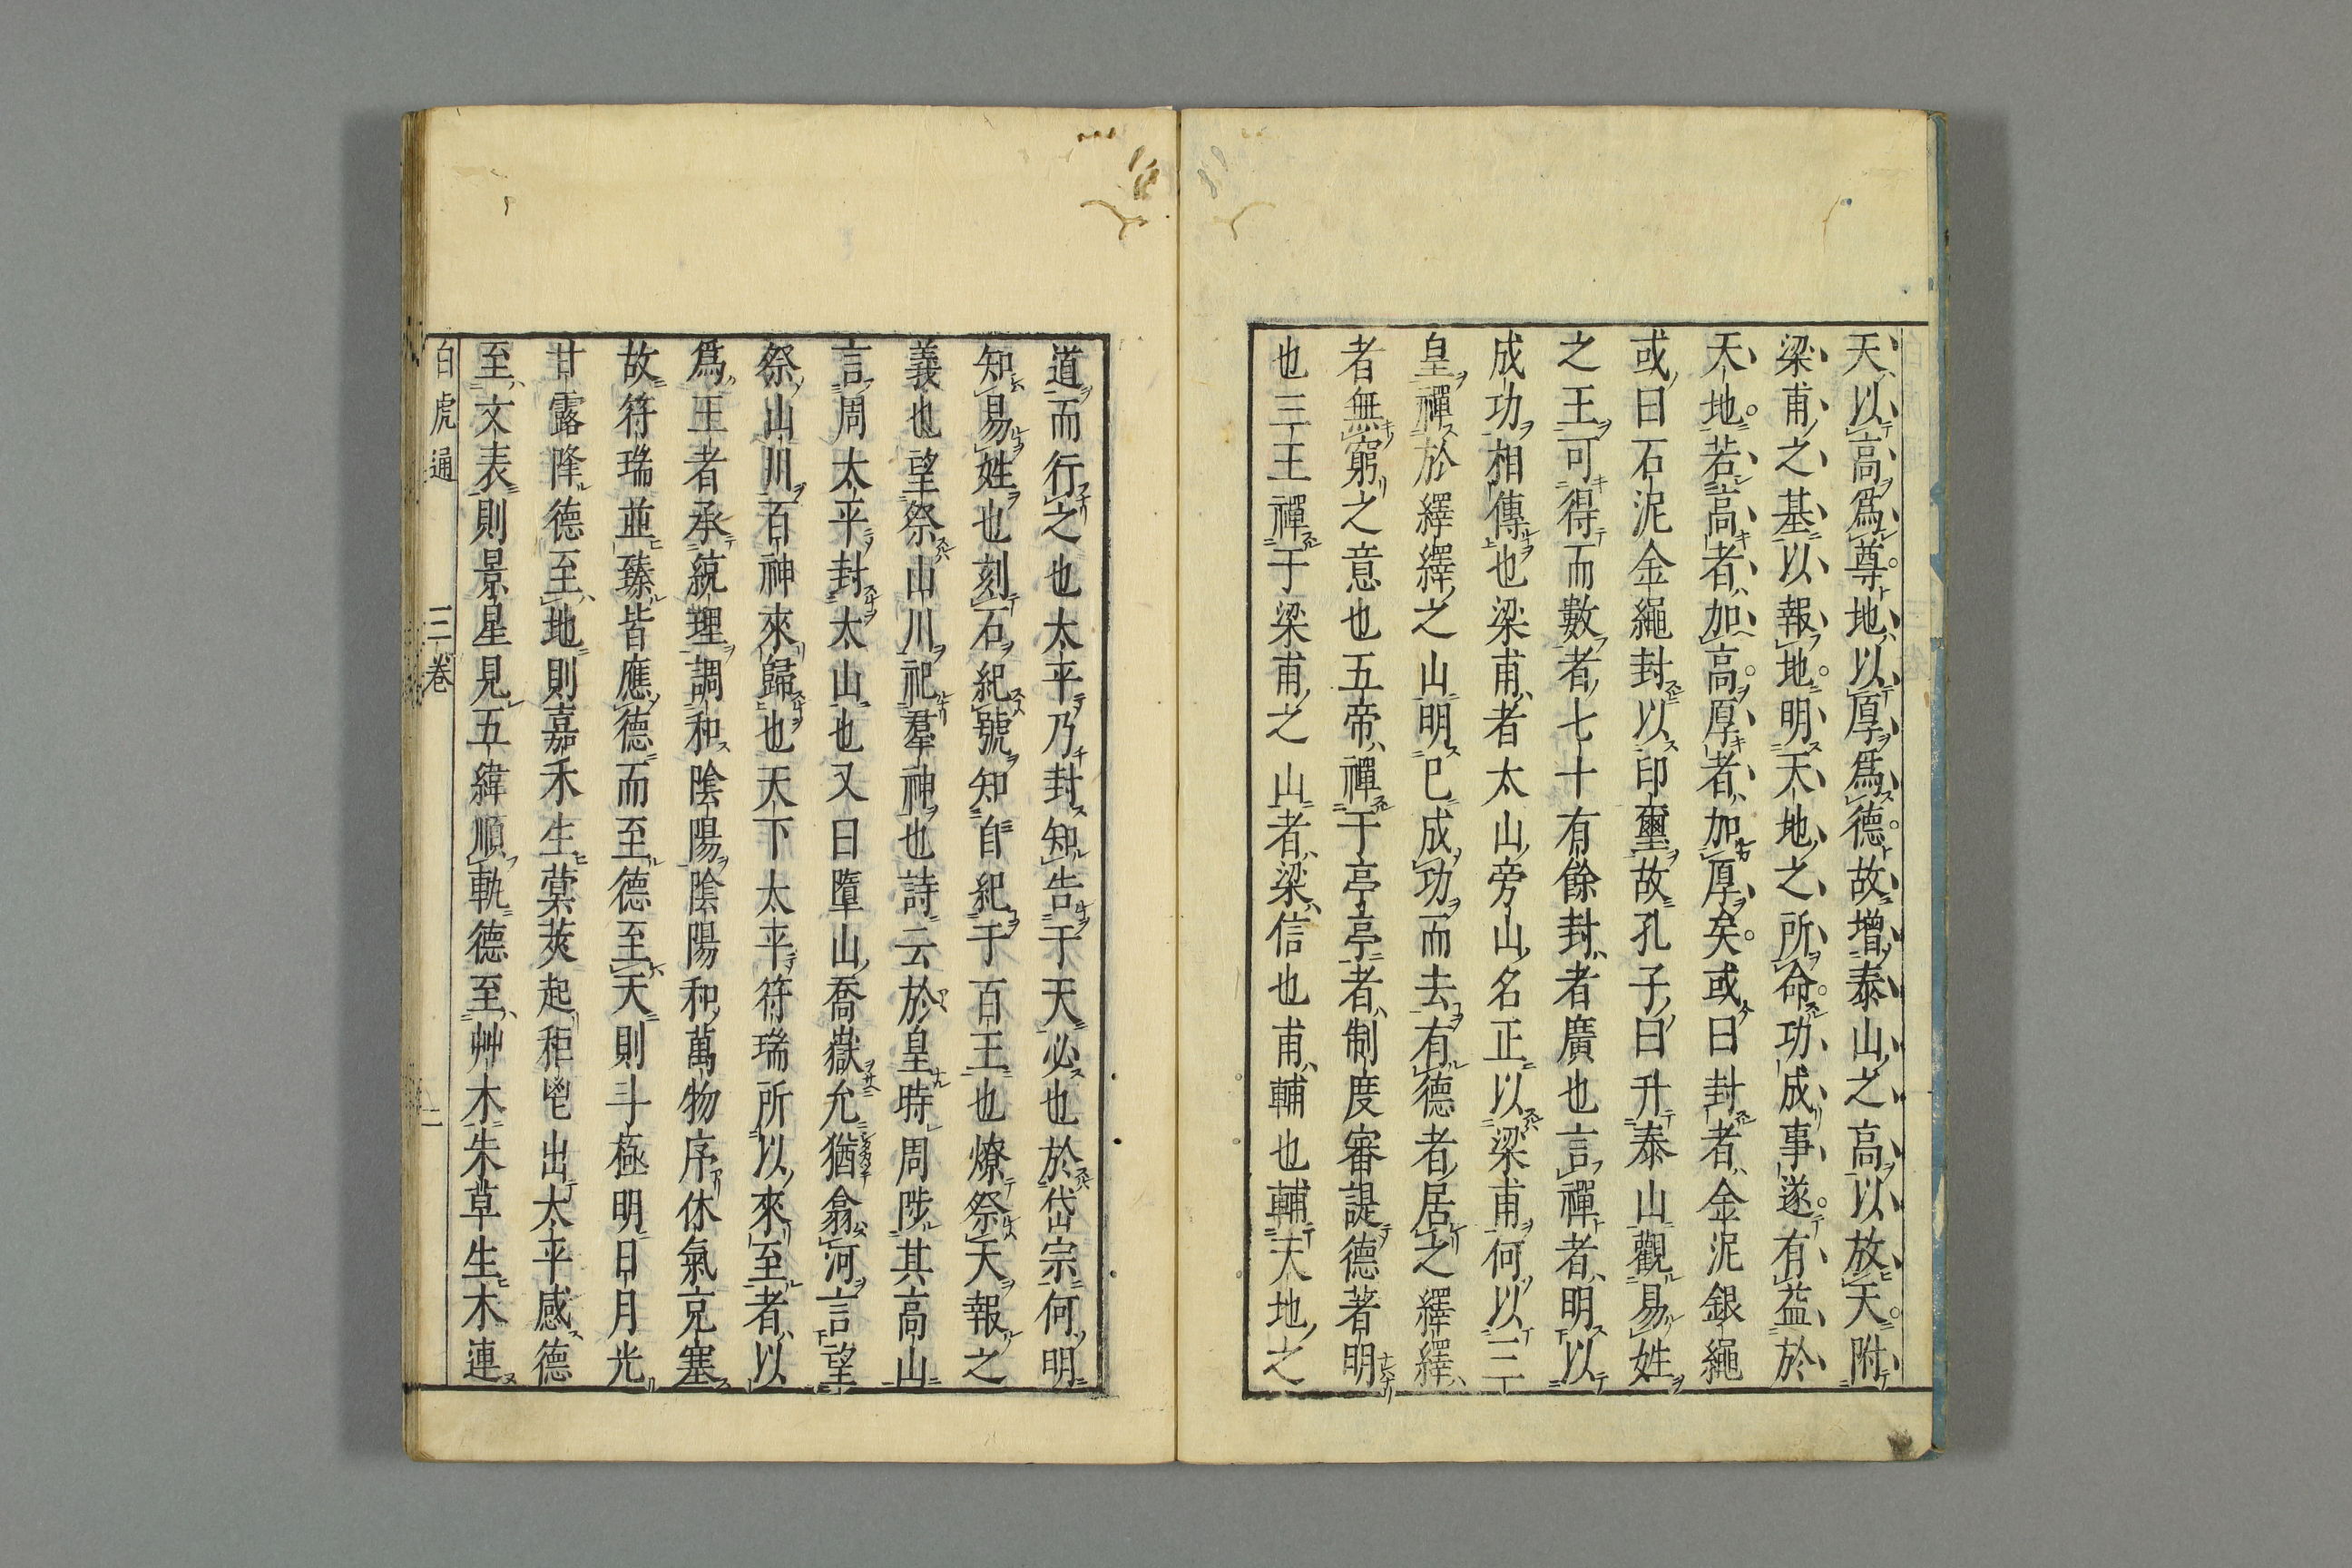 天以高爲尊地以厚爲德故增泰山之高以放天附
梁甫之基以報地明天地之所命功成事遂有益於
天地若高者加高厚者加厚矣或曰封者金泥銀繩
或曰石泥金繩封以印璽故孔子曰升泰山觀易姓
之王可得而數者七十有餘封者廣也言禪者明以
成功相傳也梁甫者太山旁山名正以梁甫何以三
皇禪於繹繹之山明已成功而去有德者居之繹繹
者無窮之意也五帝禪于亭亭者制度審諟德著明
也三王禪于梁甫之山者梁信也甫輔也輔天地之
道而行之也太平乃封知告于天必也於岱宗何明
知易姓也刻石紀號知自紀于百王也燎祭天報之
義也望祭山川祀羣神也詩云於皇時周陟其高山
言周太平封太山也又曰墮山喬嶽允猶翕河言望
祭山川百神來歸也天下太平符瑞所以來至者以
爲王者承統理調和陰陽陰陽和萬物序休氣充塞
故符瑞並臻皆應德而至德至天則斗極明日月光
甘露降德至地則嘉禾生蓂莢起秬鬯出太平感德
至文表則景星見五緯順軌德至艸木朱草生木連
白虎通 三卷 二